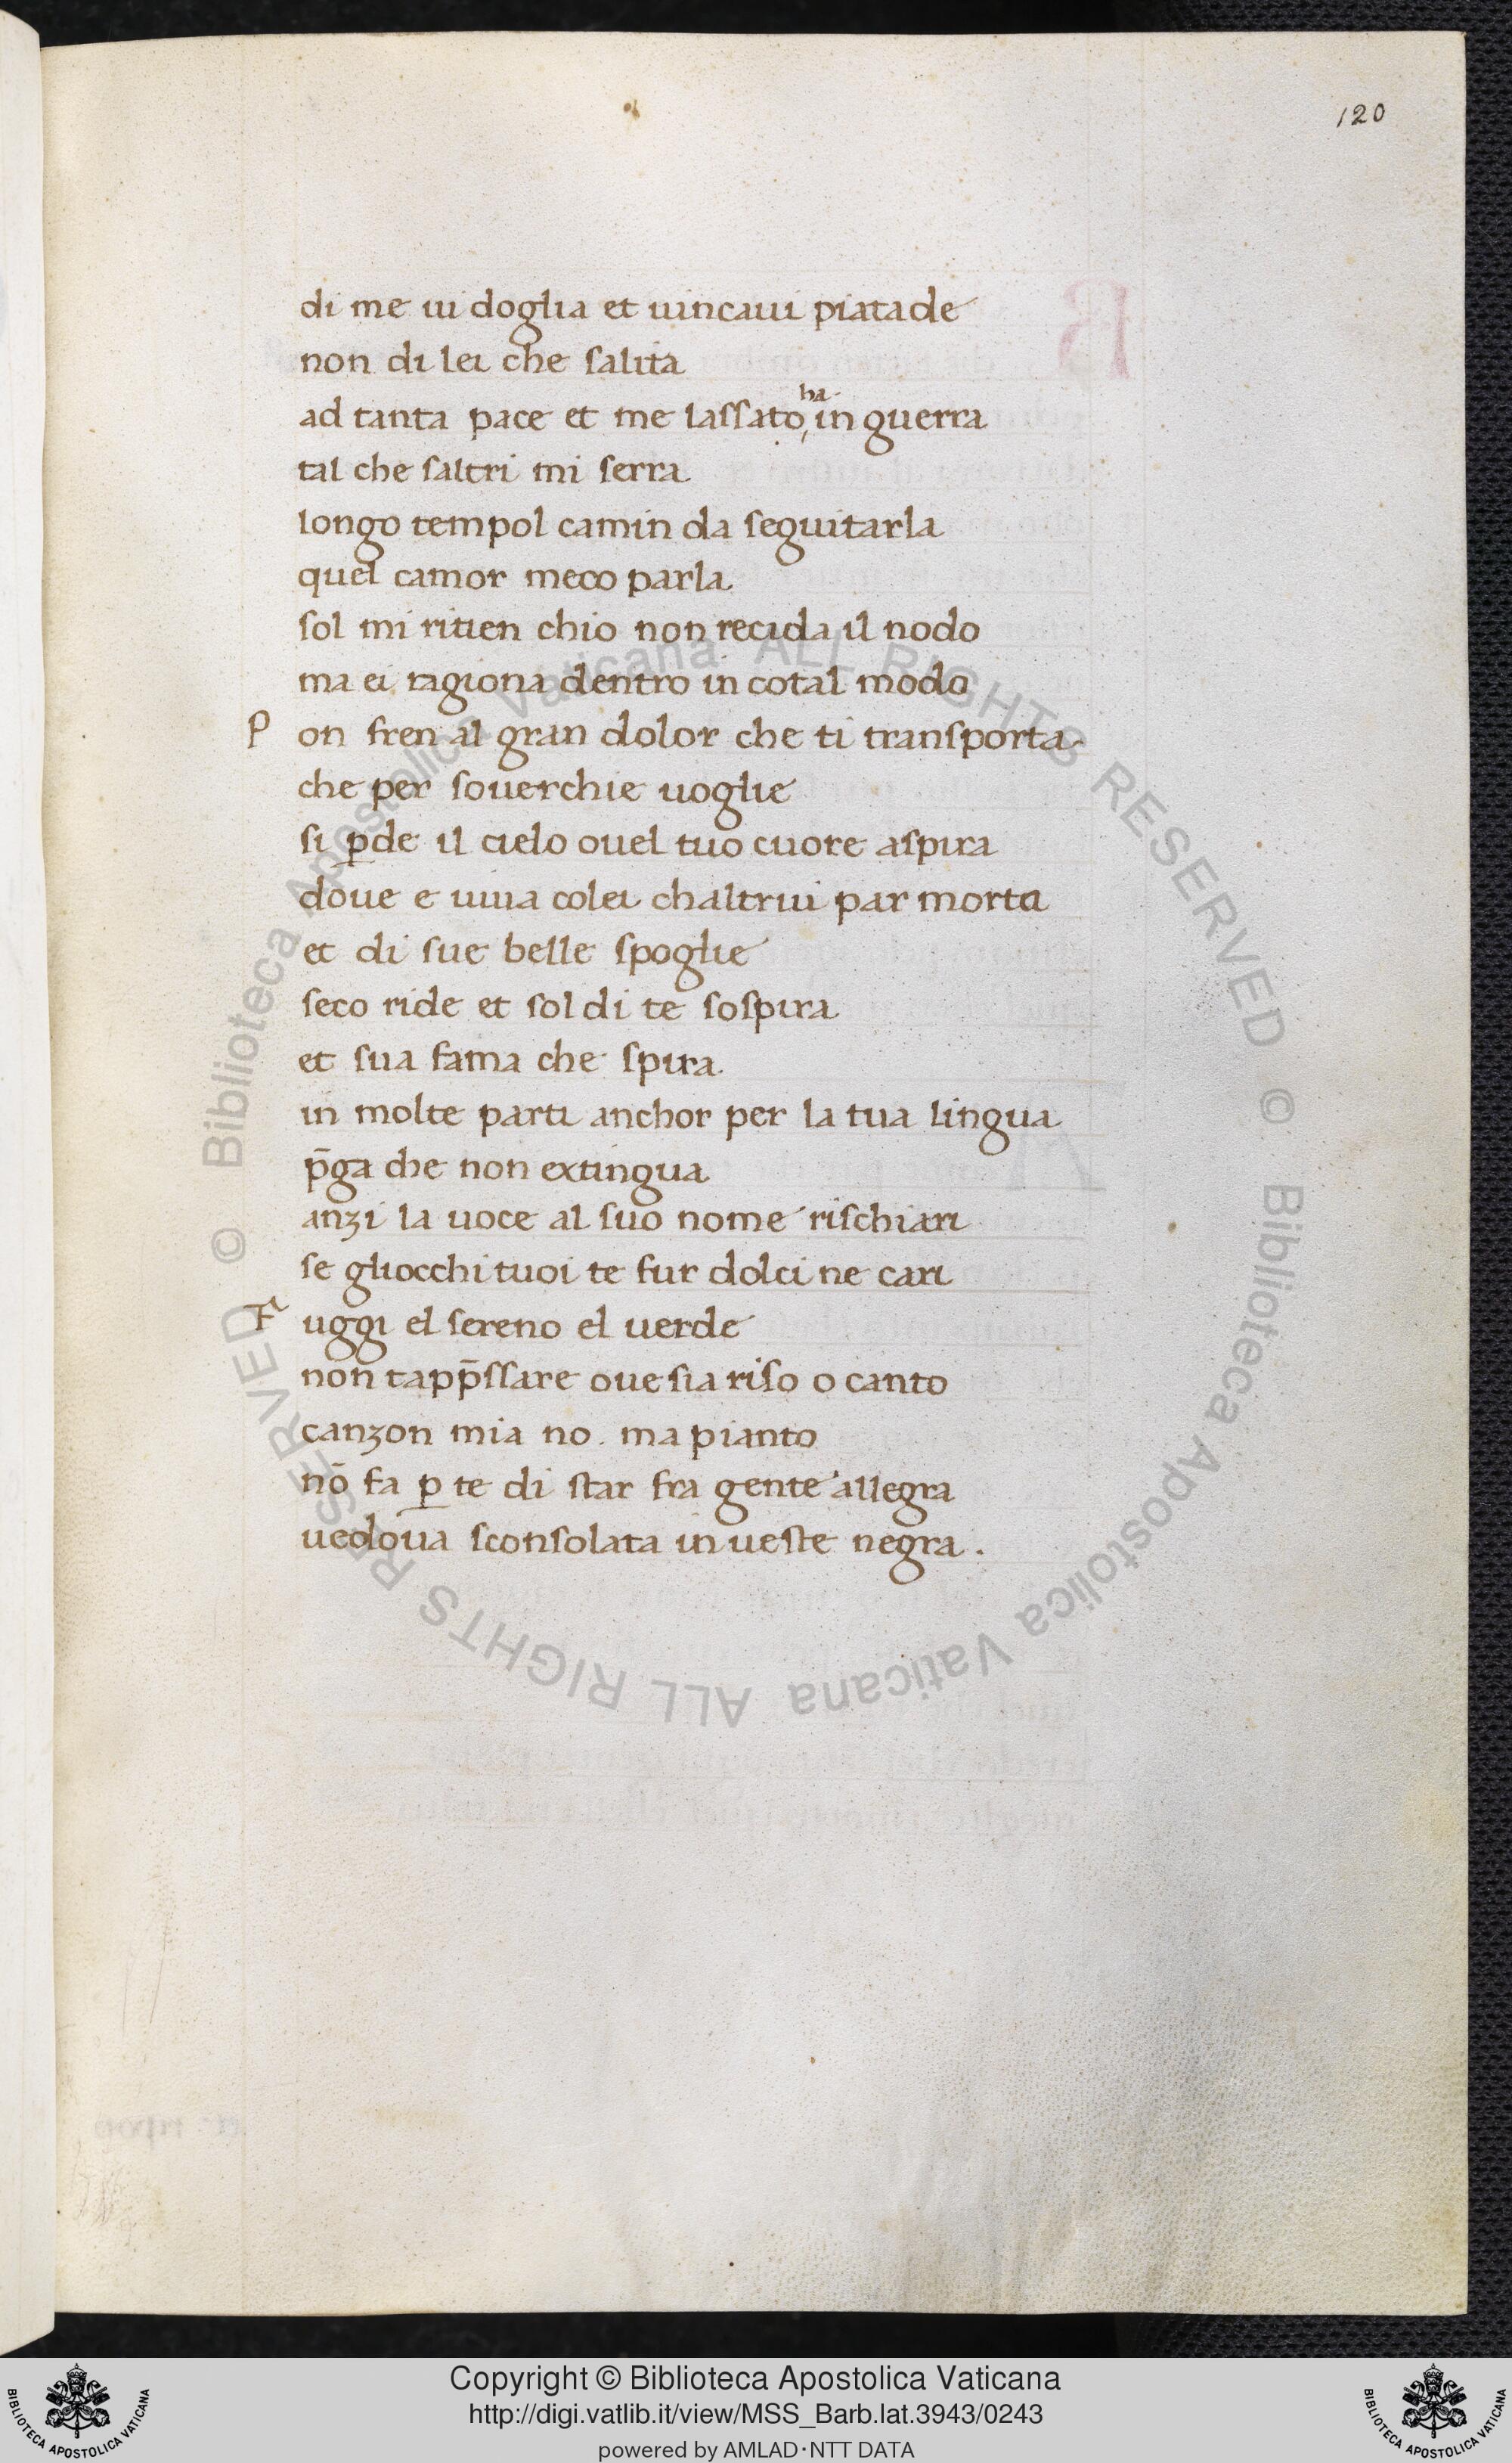 120
di me ui doglia et uincaui piatade
non di lei che salita
ad tanta pace et me lassato ha in guerra
tal che saltri mi serra
longo tempol camin da seguitarla
quel camor meco parla
sol mi ritien chio non recida il nodo
ma ei ragiona dentro in cotal modo
P on fren al gran dolor che ti transporta
che per souerchie uoglie
si ꝑde il cielo ouel tuo cuore aspira
doue e uiua colei chaltrui par morta
et di sue belle spoglie
seco ride et sol di te sospira
et sua fama che spira
in molte parti anchor per la tua lingua
p̄ga che non extingua
anzi la uoce al suo nome rischiari
se gliocchi tuoi te fur dolci ne cari
F uggi el sereno el uerde
non tapp̄ssare oue sia riso o canto
canzon mia no . ma pianto
nō fa ꝑ te di star fra gente allegra
uedoua sconsolata in ueste negra .
© Biblioteca Apostolica Vaticana ALL RIGHTS RESERVED
© Biblioteca Apostolica Vaticana ALL RIGHTS RESERVED
BIBLIOTECA APOSTOLICA VATICANA
Copyright © Biblioteca Apostolica Vaticana
http://digi.vatlib.it/view/MSS_Barb.lat.3943/0243
powered by AMLAD·NTT DATA
BIBLIOTECA APOSTOLICA VATICANA